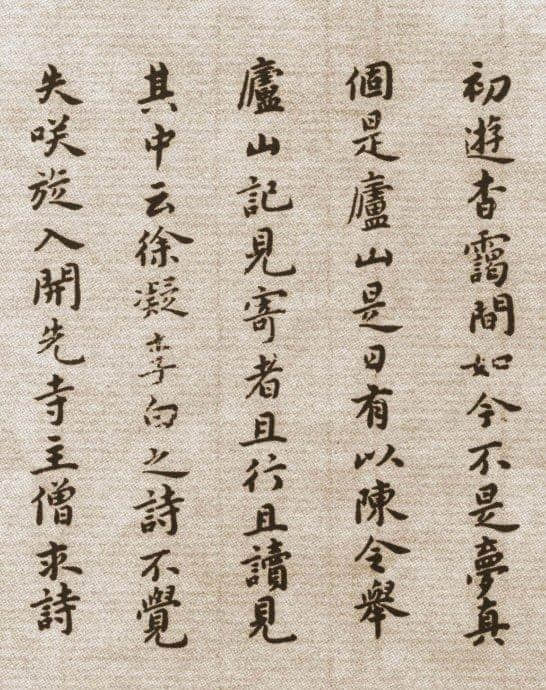 初遊杳靄間如今不是夢真
個是廬山是日有以陳令舉
廬山記見寄者且行且讀見
其中云徐凝李白之詩不覺
失咲旋入開先寺主僧求詩